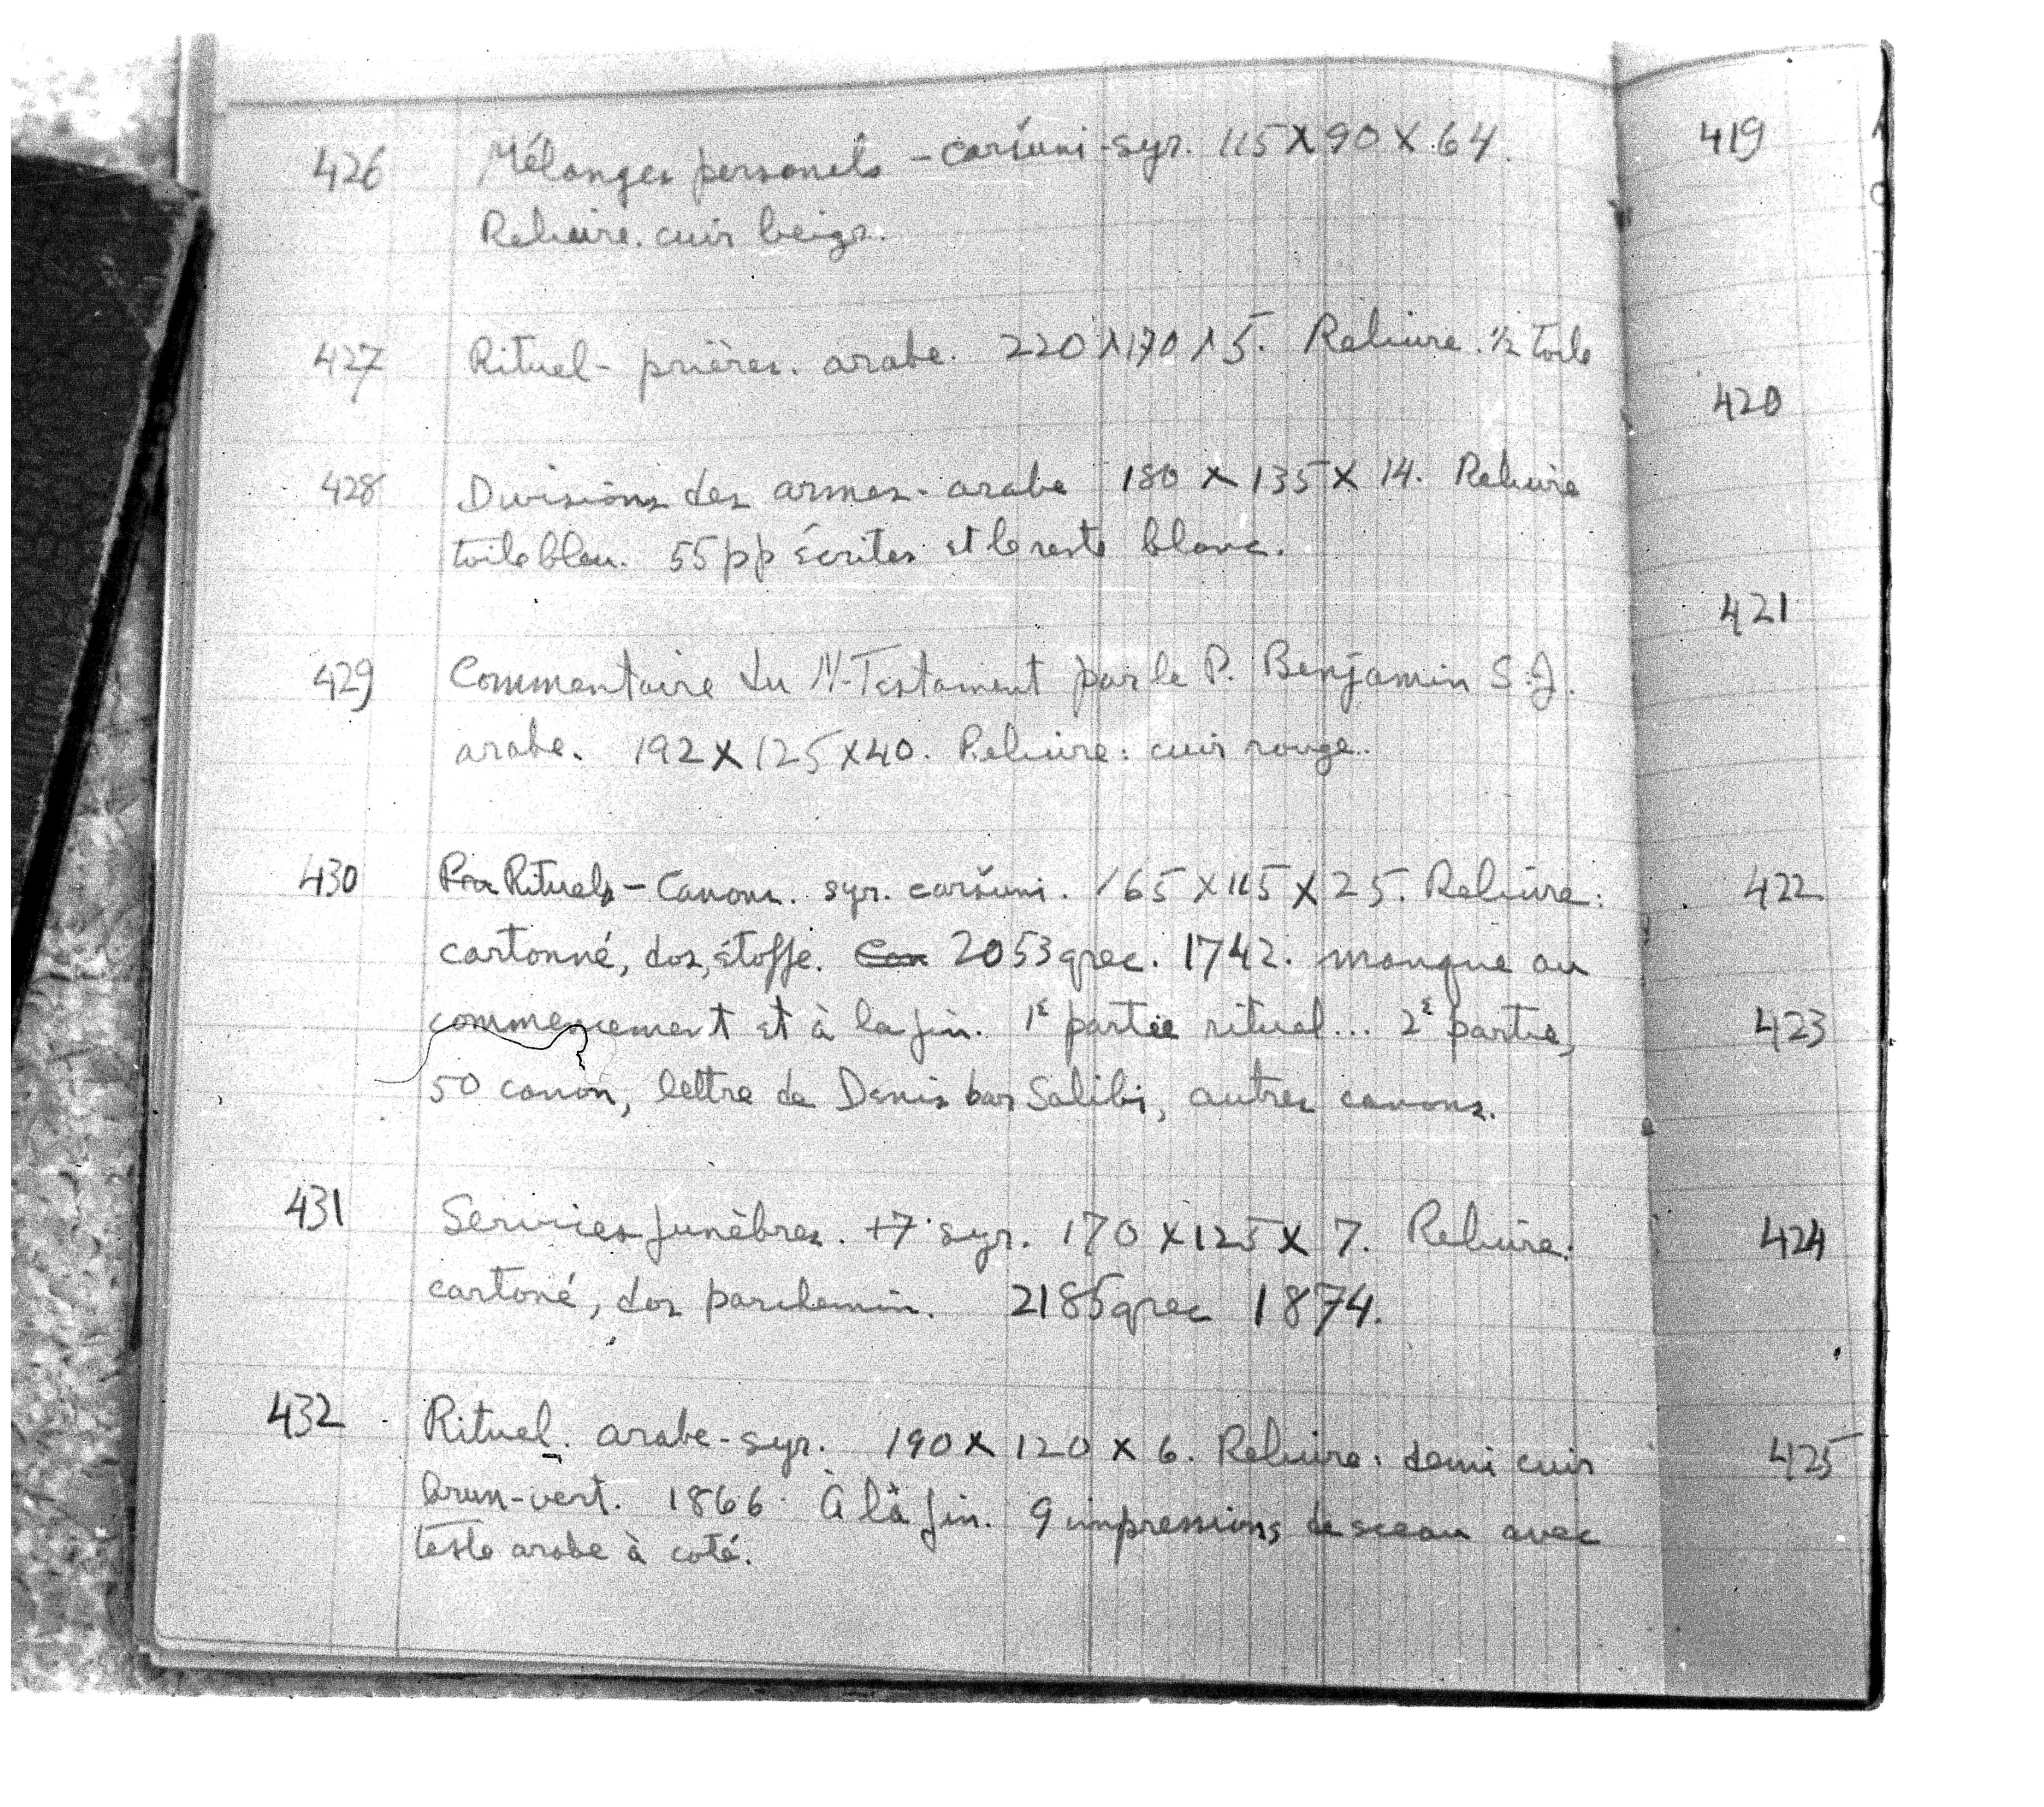 426 Mélanges personels - caršuni-syr. 115 X 90 X 64.
Reliure. cuir beige.
427 Rituel - prières. arabe. 220 x 170 x 5. Reliure. ½ toile
428 Divisions des armes - arabe 180 X 135 X 14. Reliure
toile bleu. 55 pp écrites et le reste blanc.
429 Commentaire du N-Testament par le P. Benjamin S.J.
arabe. 192 X 125 X 40. Reliure: cuir rouge..
430 Rituels - Canons. syr. caršuni. 165 X 115 X 25. Reliure:
cartonné, dos, étoffe. 2053 grec. 1742. manque au
commencement et à la fin. 1e partie rituel... 2e partie,
50 canon, lettre de Denis bar Salibi, autres canons.
431 Services funèbres. +7 syr. 170 X 125 X 7. Reliure:
cartoné, dos parchemin. 2185 grec 1874.
432 Rituel. arabe-syr. 190 X 120 X 6. Reliure: demi cuir
brun-vert. 1866. À la fin. 9 impressions de sceau avec
teste arabe à coté.
419
420
421
422
423
424
425